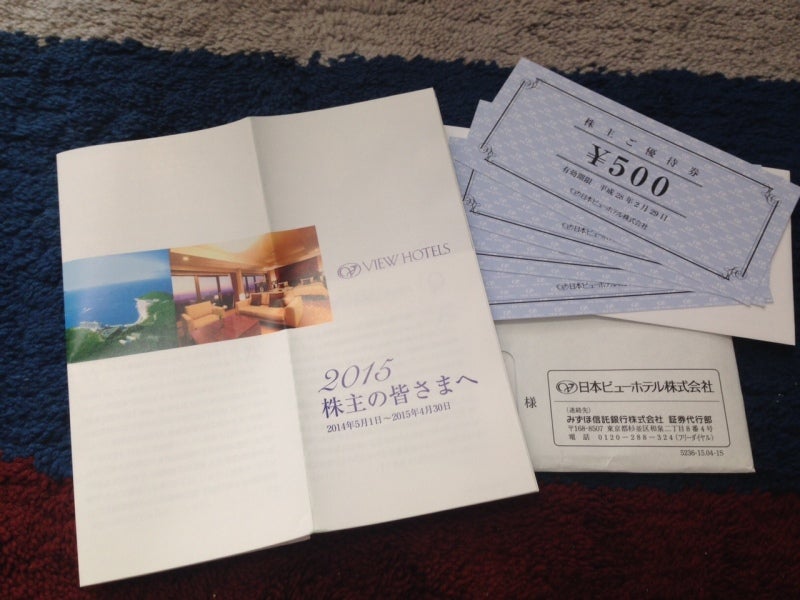 VIEW HOTELS
2015
株主の皆さまへ
2014年5月1日〜2015年4月30日
株主ご優待券
¥500
有効期限 平成28年2月29日
日本ビューホテル株式会社
日本ビューホテル株式会社
日本ビューホテル株式会社
様
日本ビューホテル株式会社
(連絡先)
みずほ信託銀行株式会社 証券代行部
〒168-8507 東京都杉並区和泉二丁目8番4号
電話 0120-288-324(フリーダイヤル)
5236-15.04-1S